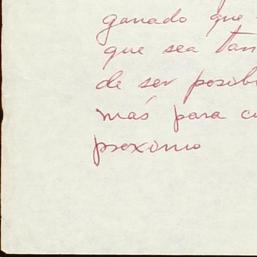 ganado que
que sea tan
de ser posib
más para c
proximo